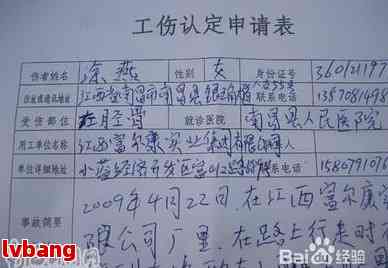 工伤认定申请表
伤者姓名 涂燕 性别 女 身份证号 3601211977
住址或通讯地址 江西省南昌市南昌县 联系电话 1357081498
受伤部位 左胫骨 就诊医院 南昌县人民医院
用工单位名称 江西富尔康实业集团有限公司
单位详细地址 小蓝经济开发区富山2路 联系电话 1580791016
事故简要 2009年4月22日,在江西富尔康实
限公司厂里,在路上行走时
lvbang
Bai 百度经验